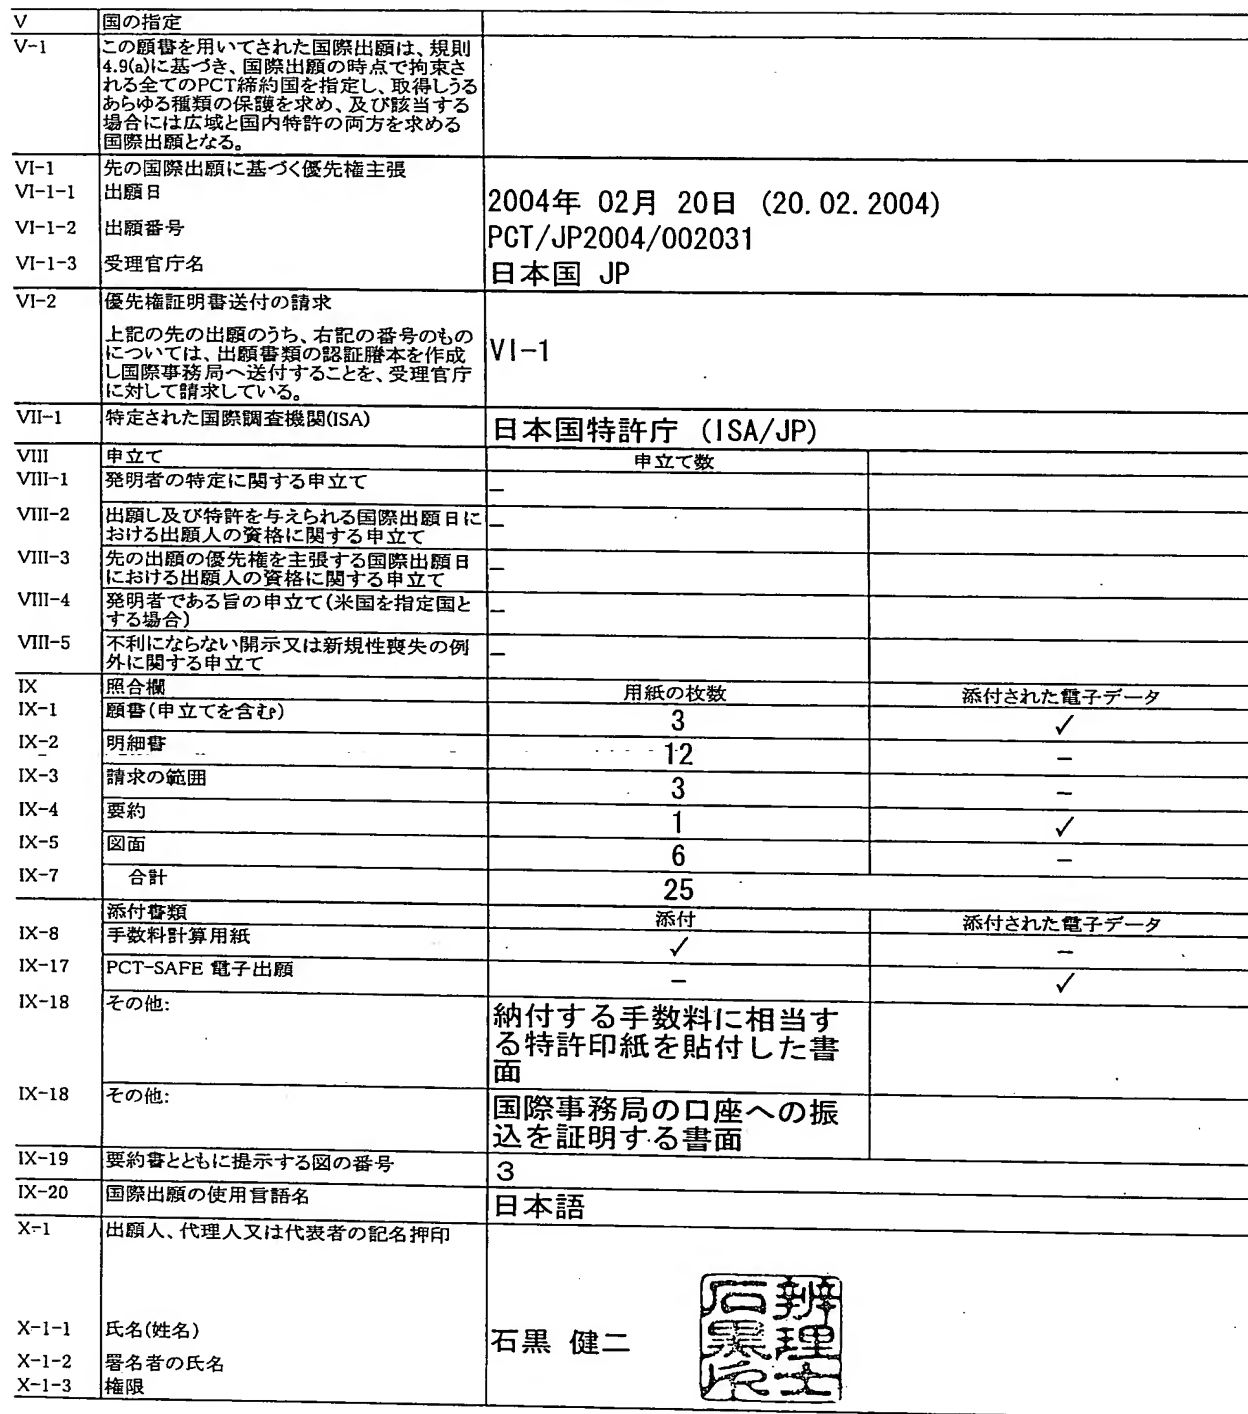 V 国の指定
V-1 この願書を用いてされた国際出願は、規則
4.9(a)に基づき、国際出願の時点で拘束さ
れる全てのPCT締約国を指定し、取得しうる
あらゆる種類の保護を求め、及び該当する
場合には広域と国内特許の両方を求める
国際出願となる。
VI-1 先の国際出願に基づく優先権主張
VI-1-1 出願日 2004年 02月 20日 (20.02.2004)
VI-1-2 出願番号 PCT/JP2004/002031
VI-1-3 受理官庁名 日本国 JP
VI-2 優先権証明書送付の請求
上記の先の出願のうち、右記の番号のもの
については、出願書類の認証謄本を作成 VI-1
し国際事務局へ送付することを、受理官庁
に対して請求している。
VII-1 特定された国際調査機関(ISA) 日本国特許庁 (ISA/JP)
VIII 申立て 申立て数
VIII-1 発明者の特定に関する申立て –
VIII-2 出願し及び特許を与えられる国際出願日に –
おける出願人の資格に関する申立て
VIII-3 先の出願の優先権を主張する国際出願日 –
における出願人の資格に関する申立て
VIII-4 発明者である旨の申立て(米国を指定国と –
する場合)
VIII-5 不利にならない開示又は新規性喪失の例 –
外に関する申立て
IX 照合欄 用紙の枚数 添付された電子データ
IX-1 願書(申立てを含む) 3 ✓
IX-2 明細書 12 –
IX-3 請求の範囲 3 –
IX-4 要約 1 ✓
IX-5 図面 6 –
IX-7 合計 25
添付書類 添付 添付された電子データ
IX-8 手数料計算用紙 ✓ –
IX-17 PCT-SAFE 電子出願 – ✓
IX-18 その他: 納付する手数料に相当す
る特許印紙を貼付した書
面
IX-18 その他: 国際事務局の口座への振
込を証明する書面
IX-19 要約書とともに提示する図の番号 3
IX-20 国際出願の使用言語名 日本語
X-1 出願人、代理人又は代表者の記名押印
X-1-1 氏名(姓名) 石黒 健二
X-1-2 署名者の氏名
X-1-3 権限
辨理士
石黒印